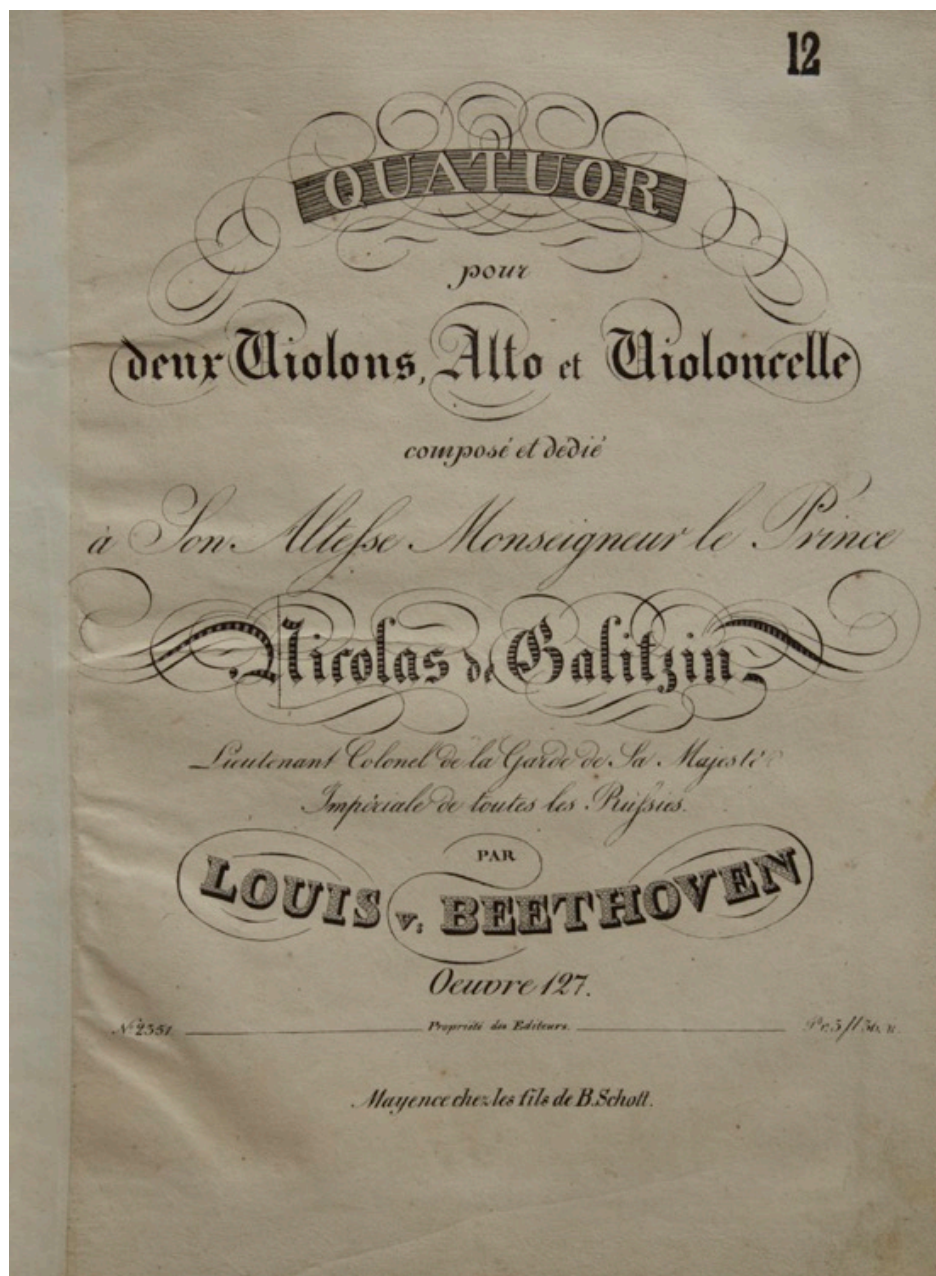 12
QUATUOR
pour
deux Violons, Alto et Violoncelle
composé et dedié
à Son Altesse Monseigneur le Prince
Nicolas de Galitzin
Lieutenant Colonel de la Garde de Sa Majesté
Impériale de toutes les Russies.
PAR
LOUIS v. BEETHOVEN
Oeuvre 127.
No 2351. Propriété des Editeurs. Pr. 3 fl 36.
Mayence chez les fils de B. Schott.